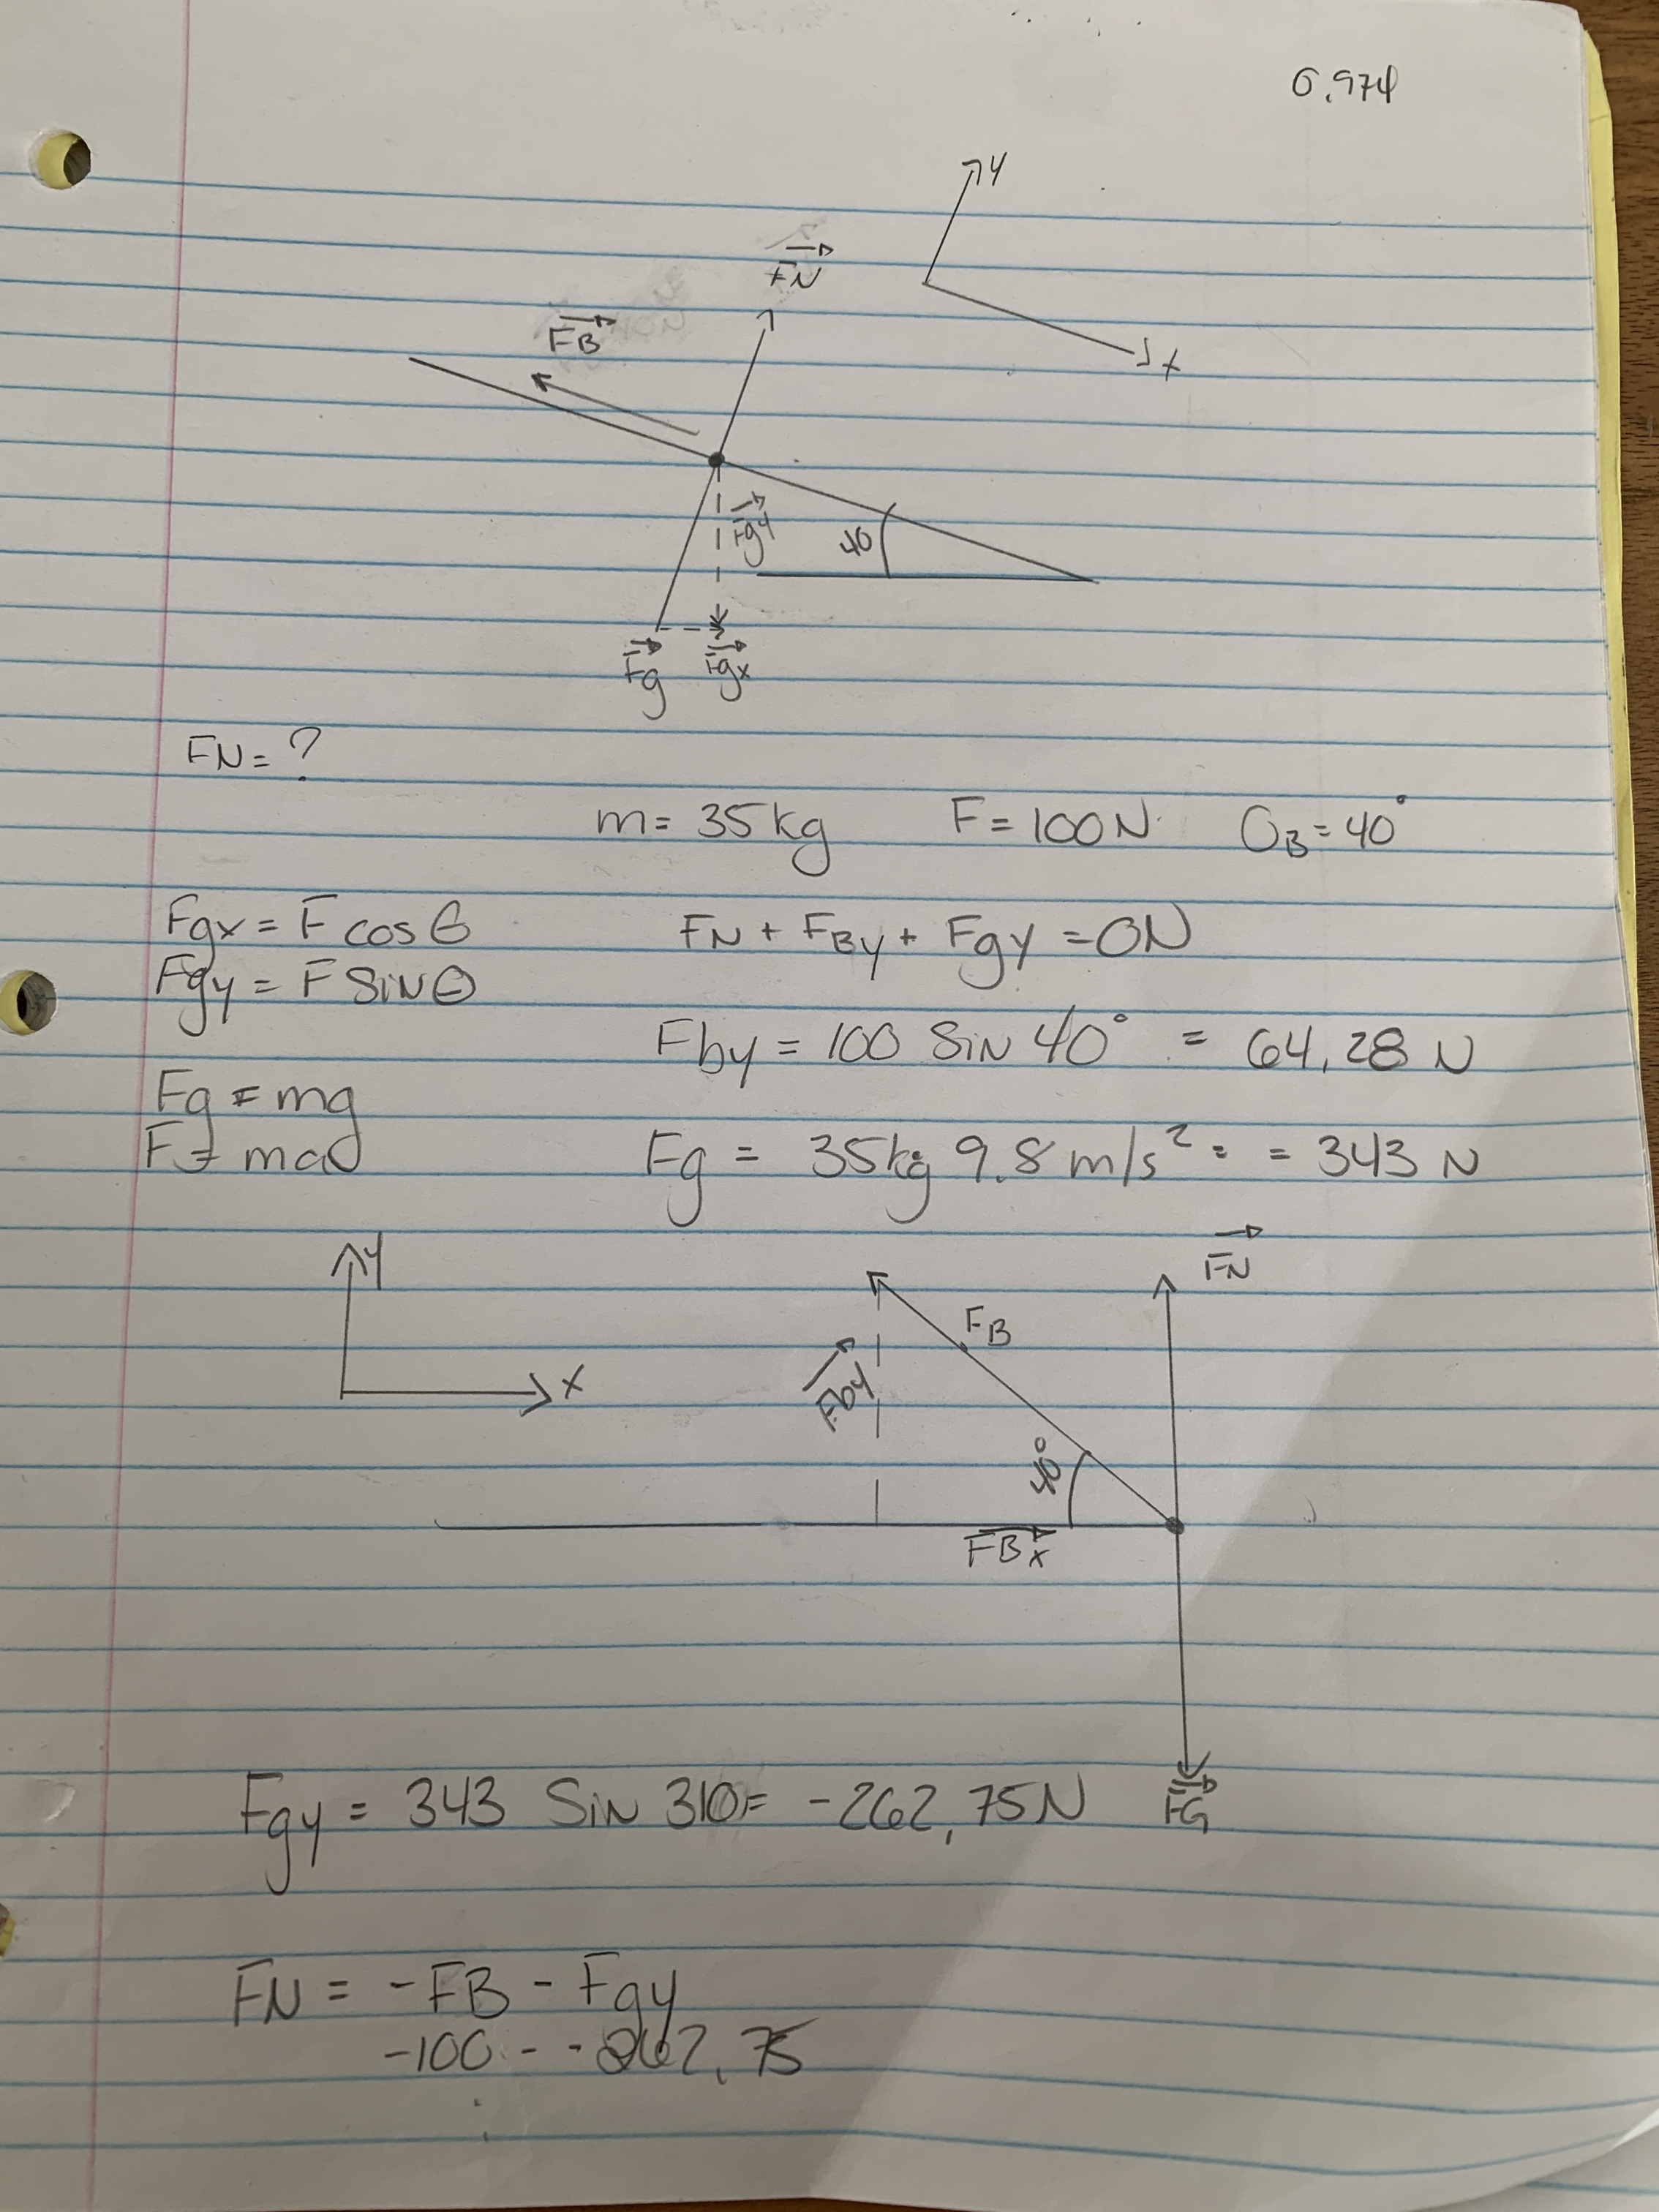 0.974
Y
X
FN
FB
Fgy
40
Fg
Fgx
FN = ?
m = 35 kg F = 100 N ΘB = 40°
Fgx = F cos θ FN + FBy + Fgy = 0N
Fgy = F sin θ
Fby = 100 sin 40° = 64,28 N
Fg = mg
F = ma
Fg = 35kg 9.8 m/s² = = 343 N
Y
X
FN
FB
Fby
40°
FBx
Fgy = 343 sin 310 = -262,75N
FG
FN = -FB - Fgy
-100 - -262,75